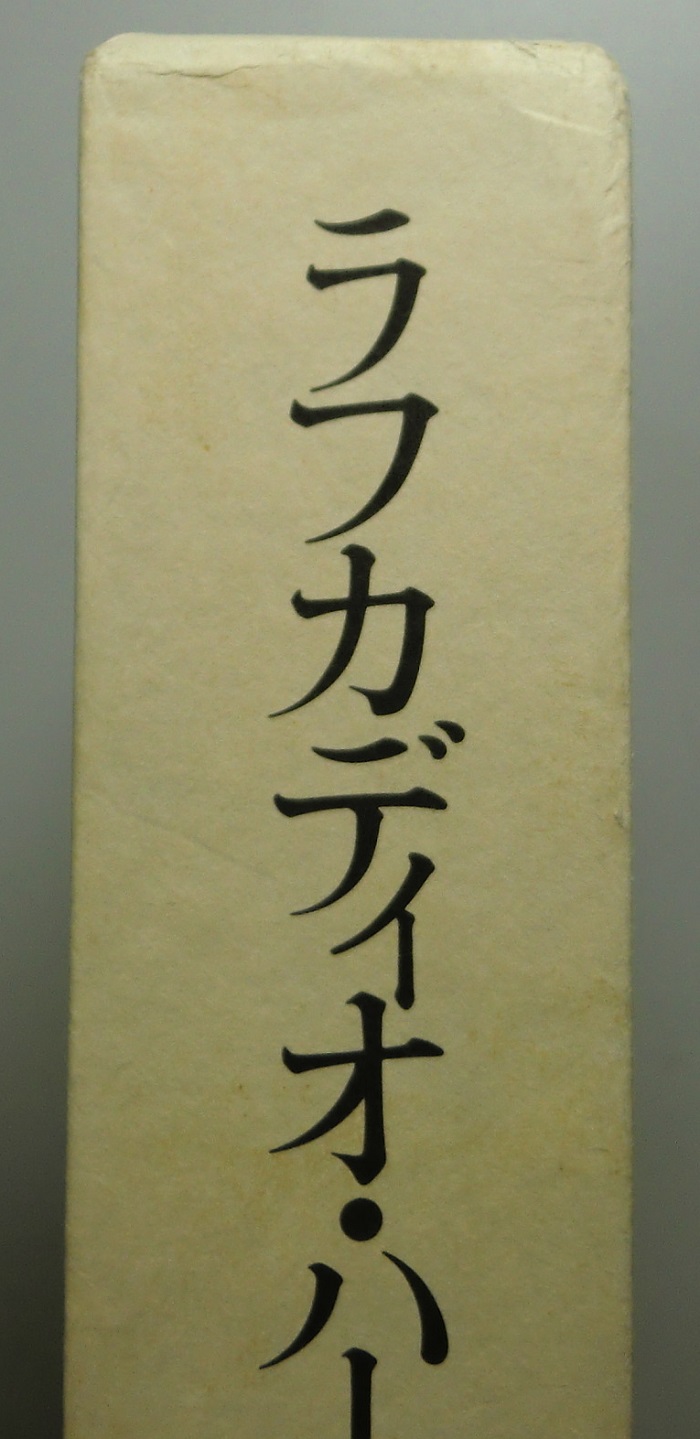 ラフカディオ・ハー